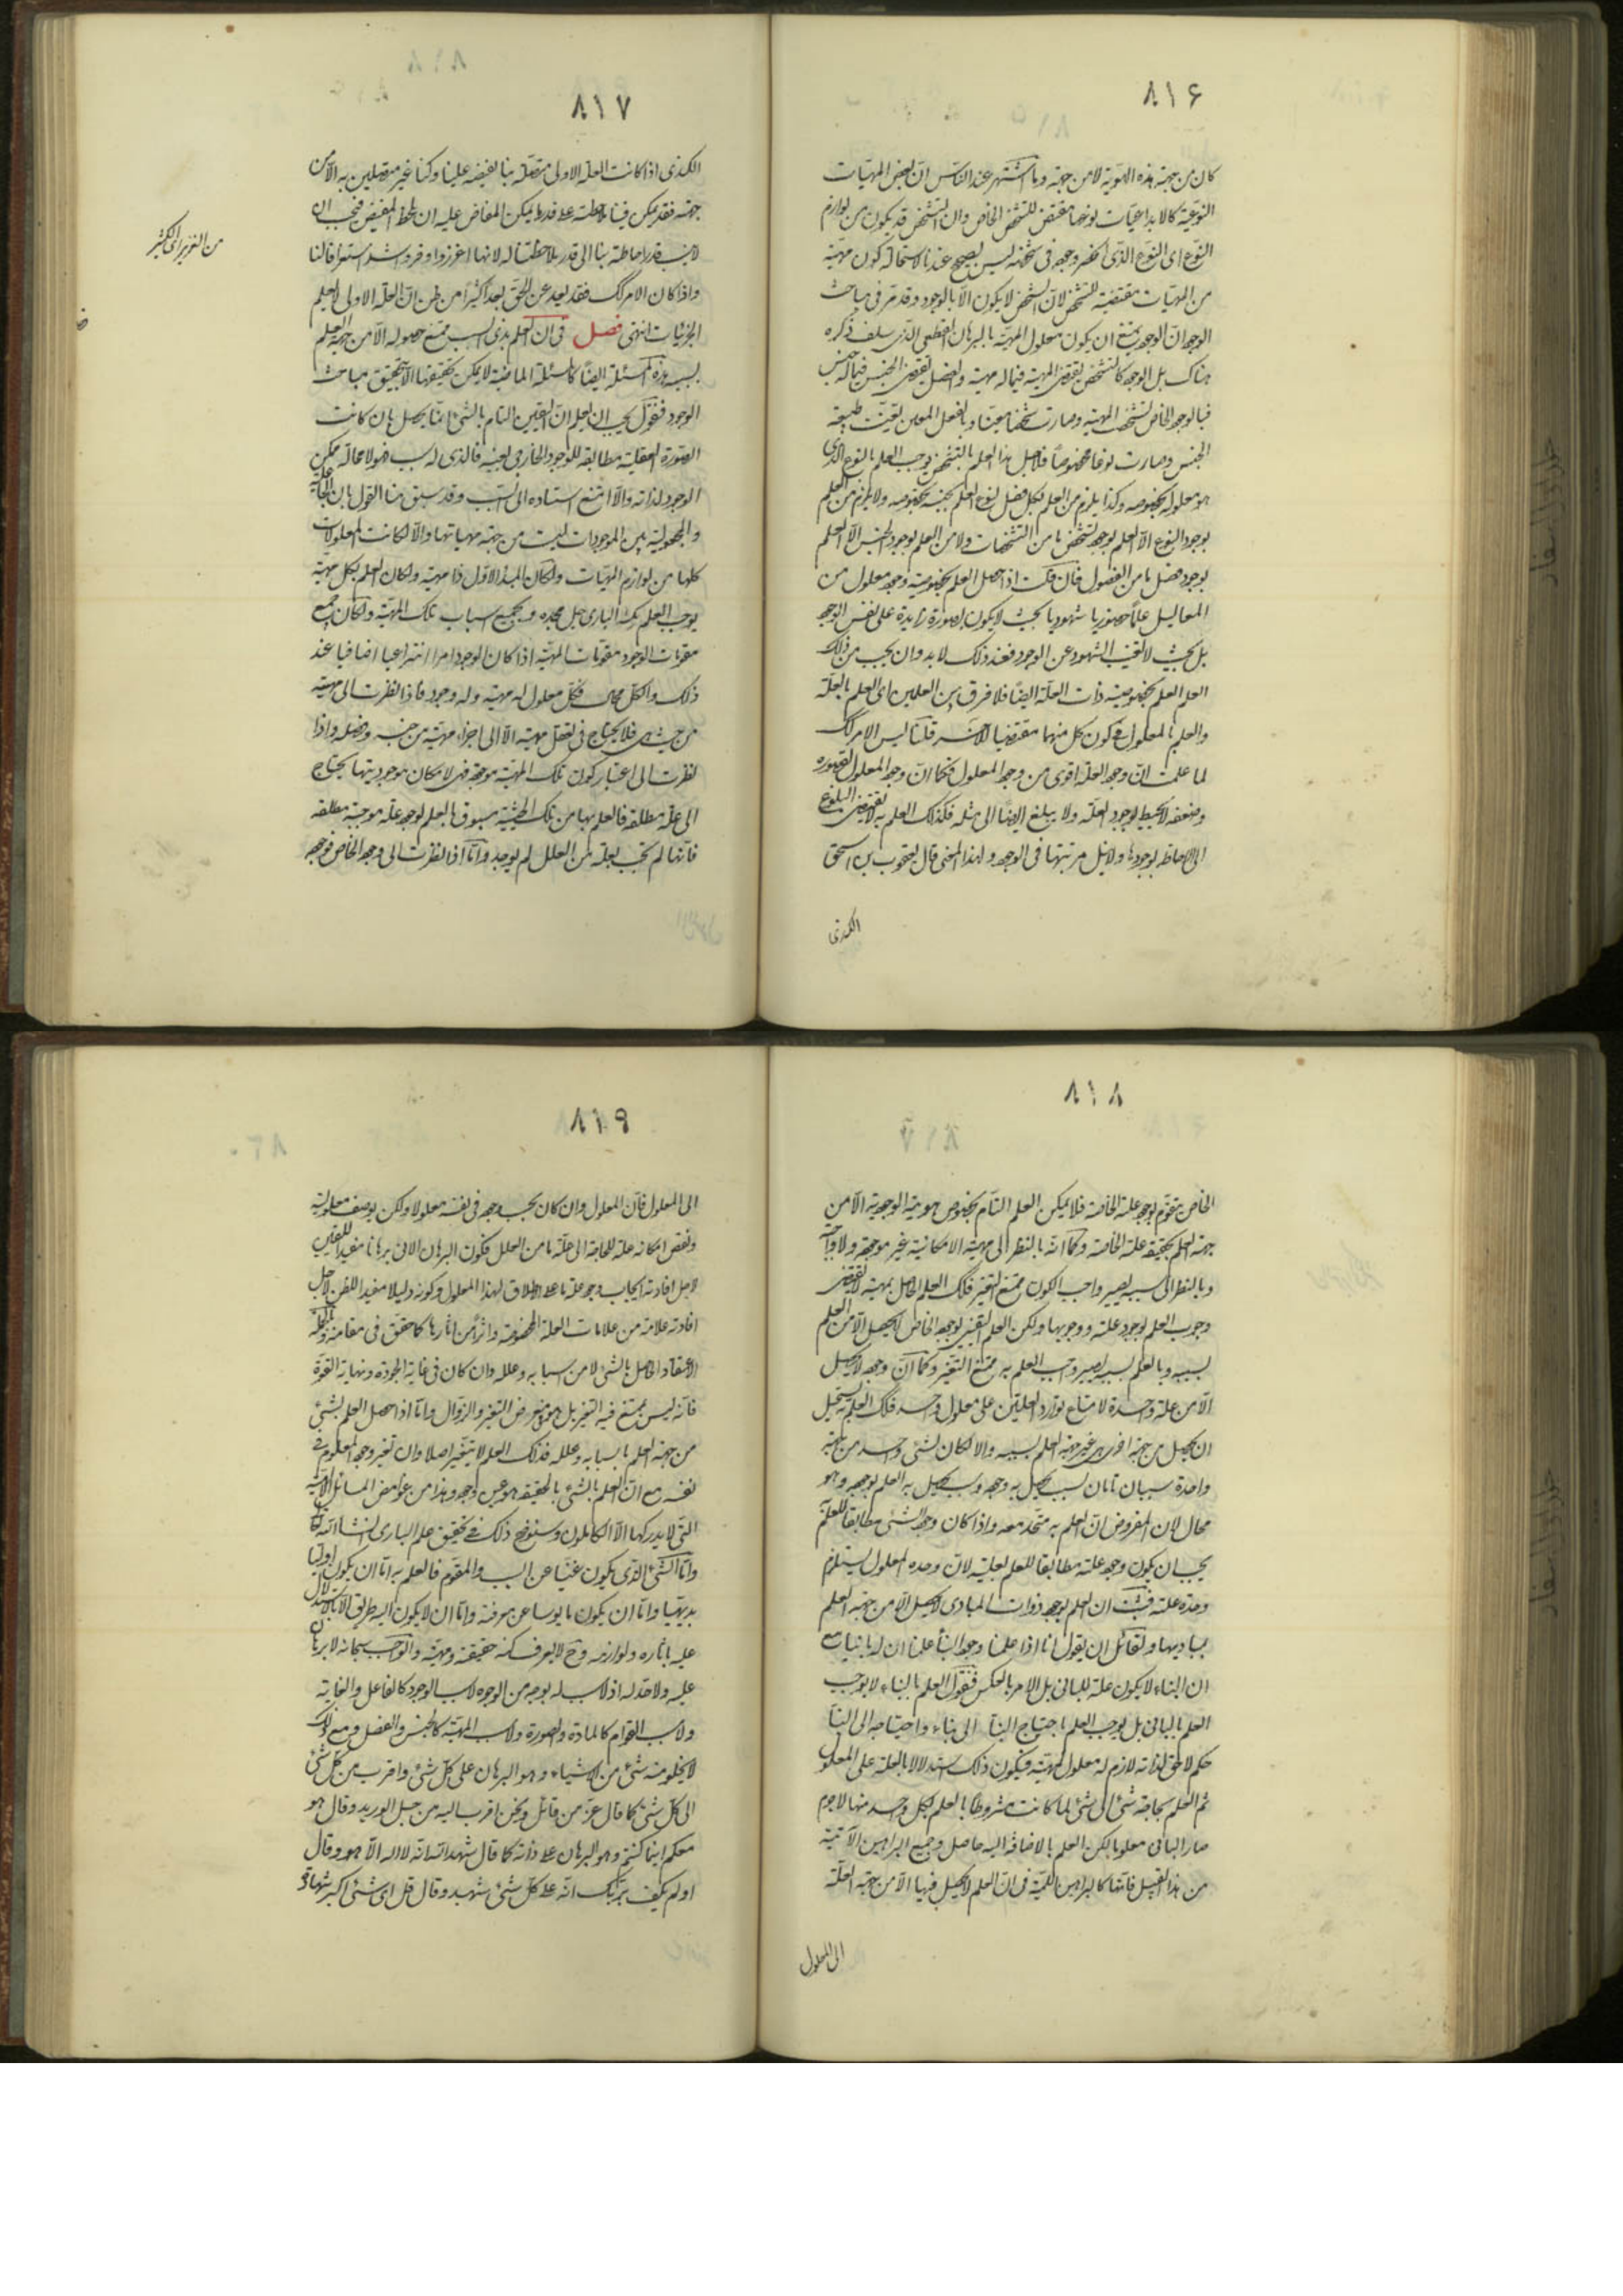 ٨١۶
كان من جهة هذه الهوية لا من جهة وما اشتهر عند الناس ان بعض المهيات
النوعية كالابداعيات نوعها مقتض للتشخص الخاص وان التشخص قد يكون من لوازم
النوع اى النوع الذى انحصر وجوده فى شخصه ليس بصحيح عندنا لاستحالة كون مهية
من المهيات مقتضية للتشخص لان التشخص لا يكون الا بالوجود وقد مر فى مباحث
الوجود ان الوجود يمتنع ان يكون معلول المهية بالبرهان القطعى الذى سلف ذكره
هناك بل الوجود كالتشخص يقتضى المهية فيما له مهية والفصل يقتضى الجنس فيما له جنس
فبالوجود الخاص تشخصت المهية وصارت شخصا معينا وبالفصل المعين تعينت طبيعة
الجنس وصارت نوعا مخصوصا فلاجل هذا العلم بالتشخص يوجب العلم بالنوع الذى
هو معلوله بخصوصه وكذا يلزم من العلم بكل فصل لنوع العلم بجنسه بخصوصه ولا يلزم من العلم
بوجود النوع الا العلم بوجود تشخص ما من التشخصات ولا من العلم بوجود الجنس الا العلم
بوجود فصل ما من الفصول فان قلت اذا حصل العلم بخصوصية وجود معلول من
المعاليل علما حضوريا شهوديا بحيث لا يكون بصورة زايدة على نفس الوجود
بل بحيث لا تغيب الشهود عن الوجود فعند ذلك لا بد وان يجب من ذلك
العلم العلم بخصوصية ذات العلة ايضا فلا فرق بين العلمين اى العلم بالعلة
والعلم بالمعلول فى كون كل منهما مقتضيا للآخر قلنا ليس الامر كك
لما علمت ان وجود العلة اقوى من وجود المعلول فكما ان وجود المعلول لقصوره
وضعفه لا يحيط بوجود العلة ولا يبلغ ايضا الى مثله فكذلك العلم به لا يقتضى البلوغ
الى الاحاطة بوجودها ولا نيل مرتبتها فى الوجود ولهذا المعنى قال يعقوب بن اسحق
الكندى
٨١٧
الكندى اذا كانت العلة الاولى متصلة بنا لفيضه علينا وكنا غير متصلين به الا من
جهته فقد يمكن فينا ملاحظته على قدر ما يمكن المفاض عليه ان يلحظ المفيض فيجب ان
لا ينسب قدر احاطته بنا الى قدر ملاحظتنا له لانها اغزر واوفر واشد استغراقا لنا
واذا كان الامر كك فقد بعد عن الحق بعدا كثيرا من ظن ان العلة الاولى لا يعلم
الجزئيات انتهى فصل فى ان العلم بذى السبب يمتنع حصوله الا من جهة العلم
بسببه هذه المسئلة ايضا كالمسئلة الماضية لا يمكن تحقيقها الا بتحقيق مباحث
الوجود فنقول يجب ان يعلم ان اليقين التام بالشئ انما يحصل بان كانت
الصورة العقلية مطابقة للوجود الخارجى بعينه فالذى له سبب فهو لا محالة ممكن
الوجود لذاته والا امتنع استناده الى السبب وقد سبق منا القول بان الجاعلية
والمجعولية بين الموجودات ليست من جهة مهياتها والا لكانت المعلولات
كلها من لوازم المهيات ولكان المبدأ الاول ذا مهية ولكان العلم بكل مهية
يوجب العلم بكنه البارى جل مجده وبجميع اسباب تلك المهية ولكان جميع
مقومات الوجود مقومات المهية اذا كان الوجود امرا انتزاعيا اضافيا عند
ذلك والكل محال فكل معلول له مهية وله وجود فاذا نظرت الى مهيته
من حيث هى فلا يحتاج فى تعقل مهيته الا الى اجزاء مهيته من جنسه وفصله واذا
نظرت الى اعتبار كون تلك المهية موجودة فهى لامكان موجوديتها يحتاج
الى علة مطلقة فالعلم بها من تلك الحيثية مسبوق بالعلم بوجود علة موجبة مطلقة
فانها لم تجب بعلة من العلل لم يوجد واما اذا نظرت الى وجوده الخاص فوجوده
من الغزير الى الكثير
٨١٨
الخاص متقوم بوجود علته الخاصة فلا يمكن العلم التام بخصوص هويته الوجودية الا من
جهة العلم بحقيقة علته الخاصة وكما انه بالنظر الى مهيته الامكانية غير موجودة ولا واجبة
وبالنظر الى سببه يصير واجب الكون ممتنع التغير فكك العلم الحاصل بمهيته لا يقتضى
وجوب العلم بوجود علته ووجوبها ولكن العلم اليقينى بوجوده الخاص لا يحصل الا من العلم
بسببه وبالعلم بسببه يصير واجب العلم به ممتنع التغير وكما ان وجوده لا يحصل
الا من علة واحدة لامتناع توارد العلتين على معلول واحد فكك العلم به يستحيل
ان يحصل من جهة اخرى غير جهة العلم بسببه والا لكان لشئ واحد من جهة
واحدة سببان تامان سبب يحصل به وجوده وسبب يحصل به العلم بوجوده وهو
محال لان المفروض ان العلم به متحد معه واذا كان وجود الشئ مطابقا للعلم به
يجب ان يكون وجود علته مطابقا للعلم بعلته لان وحدة المعلول يستلزم
وحدة علته فثبت ان العلم بوجود ذوات المبادى لا يحصل الا من جهة العلم
بمباديها ولقائل ان يقول انا اذا علمنا وجود البناء علمنا ان له بانيا مع
ان البناء لا يكون علة للبانى بل الامر بالعكس فنقول العلم بالبناء لا يوجب
العلم بالبانى بل يوجب العلم باحتياج البناء الى بناء واحتياجه الى البناء
حكم لاحق لذاته لازم له معلول لمهيته فيكون ذلك استدلالا بالعلة على المعلول
ثم العلم بحاجة شئ الى شئ لما كانت مشروطا بالعلم بكل واحد منهما لا جرم
صار البانى معلوما لكن العلم بالاضافة اليه حاصل وجميع البراهين الآنية
من هذا القبيل فانها كالبراهين اللمية فى ان العلم لا يحصل فيها الا من جهة العلة
الى المعلول
٨١٩
الى المعلول فان المعلول وان كان بحسب وجوده فى نفسه معلولا ولكن بوصف معلوليته
ونقص امكانه علة للحاجة الى علة ما من العلل فكون البرهان الانى برهانا مفيدا لليقين
لاجل افادته ايجاب وجود علة ما على الاطلاق لهذا المعلول وكونه دليلا مفيدا للظن لاجل
افادته علامة من علامات العلة المخصوصة واثرا من اثارها كما حقق فى مقامه وبالجملة
الاعتقاد الحاصل بالشئ لا من اسبابه وعلله وان كان فى غاية الجودة ونهاية القوة
فانه ليس يمتنع فيه التغير بل هو فى معرض التغير والزوال واما اذا حصل العلم بشئ
من جهة العلم باسبابه وعلله فذلك العلم لا يتغير اصلا وان تغير وجود المعلوم فى
نفسه مع ان العلم بالشئ بالحقيقة هو عين وجوده وهذا من غوامض المسائل الالهية
التى لا يدركها الا الكاملون وسنوضح ذلك فى تحقيق علم البارى انشاء الله تعالى
واما الشئ الذى يكون غنيا عن السبب والمقوم فالعلم به اما ان يكون اوليا
بديهيا واما ان يكون مايوسا عن معرفته واما ان لا يكون اليه طريق الا بالاستدلال
عليه باثاره ولوازمه وح لا يعرف كنه حقيقته ومهيته والواجب سبحانه لا برهان
عليه ولا حد له اذ لا سبب له بوجه من الوجوه لا سبب الوجود كالفاعل والغاية
ولا سبب القوام كالمادة والصورة ولا سبب المهية كالجنس والفصل ومع ذلك
لا يخلو منه شئ من الاشياء وهو البرهان على كل شئ واقرب من كل شئ
الى كل شئ كما قال عز من قائل ونحن اقرب اليه من حبل الوريد وقال هو
معكم اينما كنتم وهو البرهان على ذاته كما قال شهد الله انه لا اله الا هو وقال
اولم يكف بربك انه على كل شئ شهيد وقال قل اى شئ اكبر شهادة